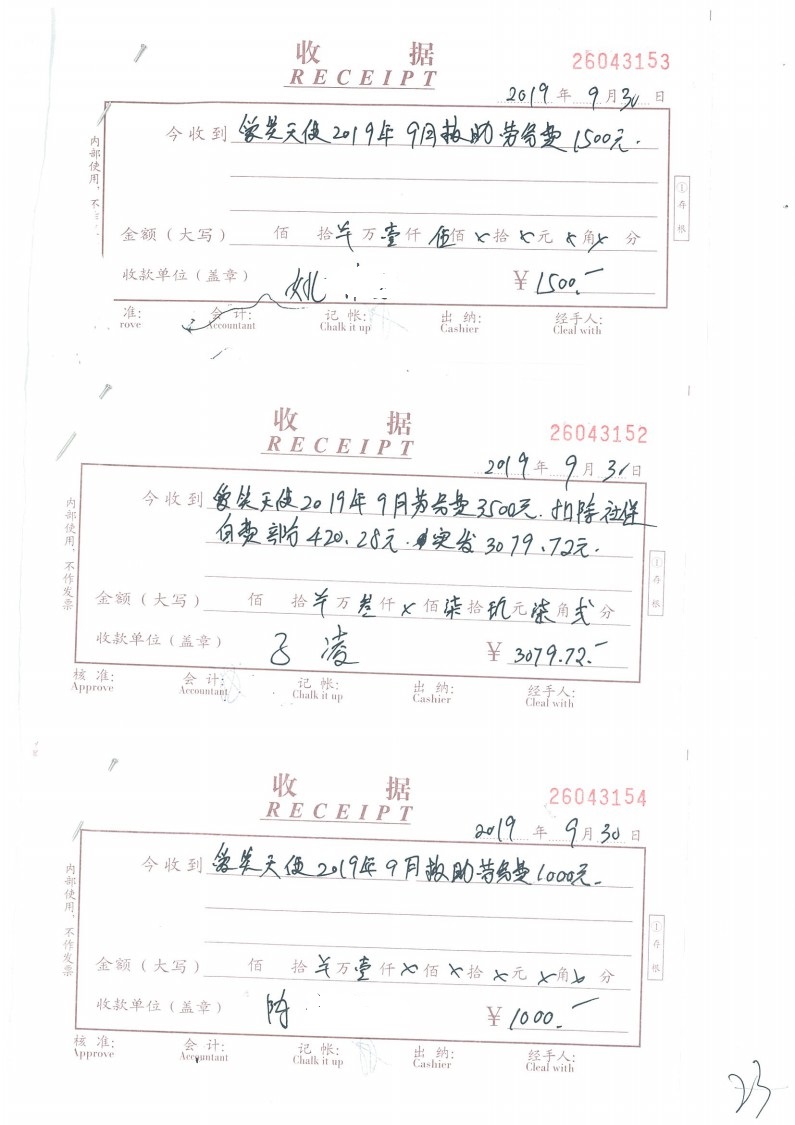 收 据
RECEIPT
26043153
2019 年 9 月 30 日
今收到 爱笑天使2019年9月救助劳务费1500元.
内部使用，不
①存根
金额（大写） 佰 拾 羊 万 壹 仟 伍 佰 x 拾 x 元 x 角 x 分
收款单位（盖章） 姚 ¥ 1500.-
准: 会 计: 记 帐: 出 纳: 经手人:
rove Accountant Chalk it up Cashier Cleal with
收 据
RECEIPT
26043152
2019 年 9 月 31 日
今收到 爱笑天使2019年9月劳务费3500元.扣除社保
自费部分420.28元.实发3079.72元.
内部使用，不作发票
①存根
金额（大写） 佰 拾 羊 万 叁 仟 x 佰 柒 拾 玖 元 柒 角 贰 分
收款单位（盖章） 凌 ¥ 3079.72.-
核 准: 会 计: 记 帐: 出 纳: 经手人:
Approve Accountant Chalk it up Cashier Cleal with
收 据
RECEIPT
26043154
2019 年 9 月 30 日
今收到 爱笑天使2019年9月救助劳务费1000元.
内部使用，不作发票
①存根
金额（大写） 佰 拾 羊 万 壹 仟 x 佰 x 拾 x 元 x 角 x 分
收款单位（盖章） 陈 ¥ 1000.-
核 准: 会 计: 记 帐: 出 纳: 经手人:
Approve Accountant Chalk it up Cashier Cleal with
23